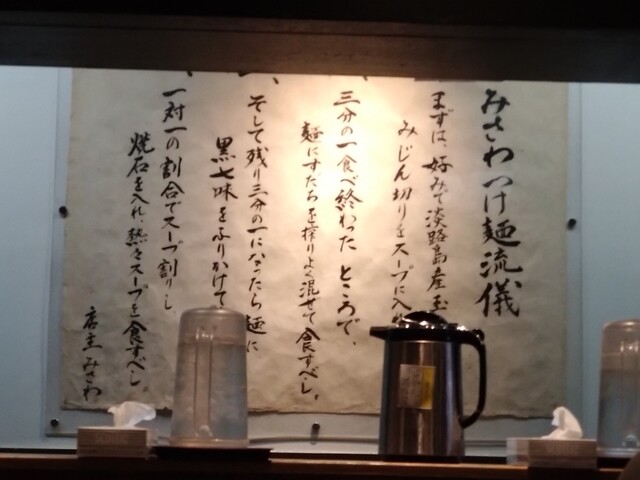 みさわつけ麺流儀
まずは、好みで淡路島産玉
みじん切りをスープに入れ
三分の一食べ終わったところで、
麺にすだちを搾りよく混ぜて食すべし。
そして残り三分の一になったら麺に
黒七味をふりかけて
一対一の割合でスープ割りし
焼石を入れ、熱々スープを食すべし。
店主みさわ